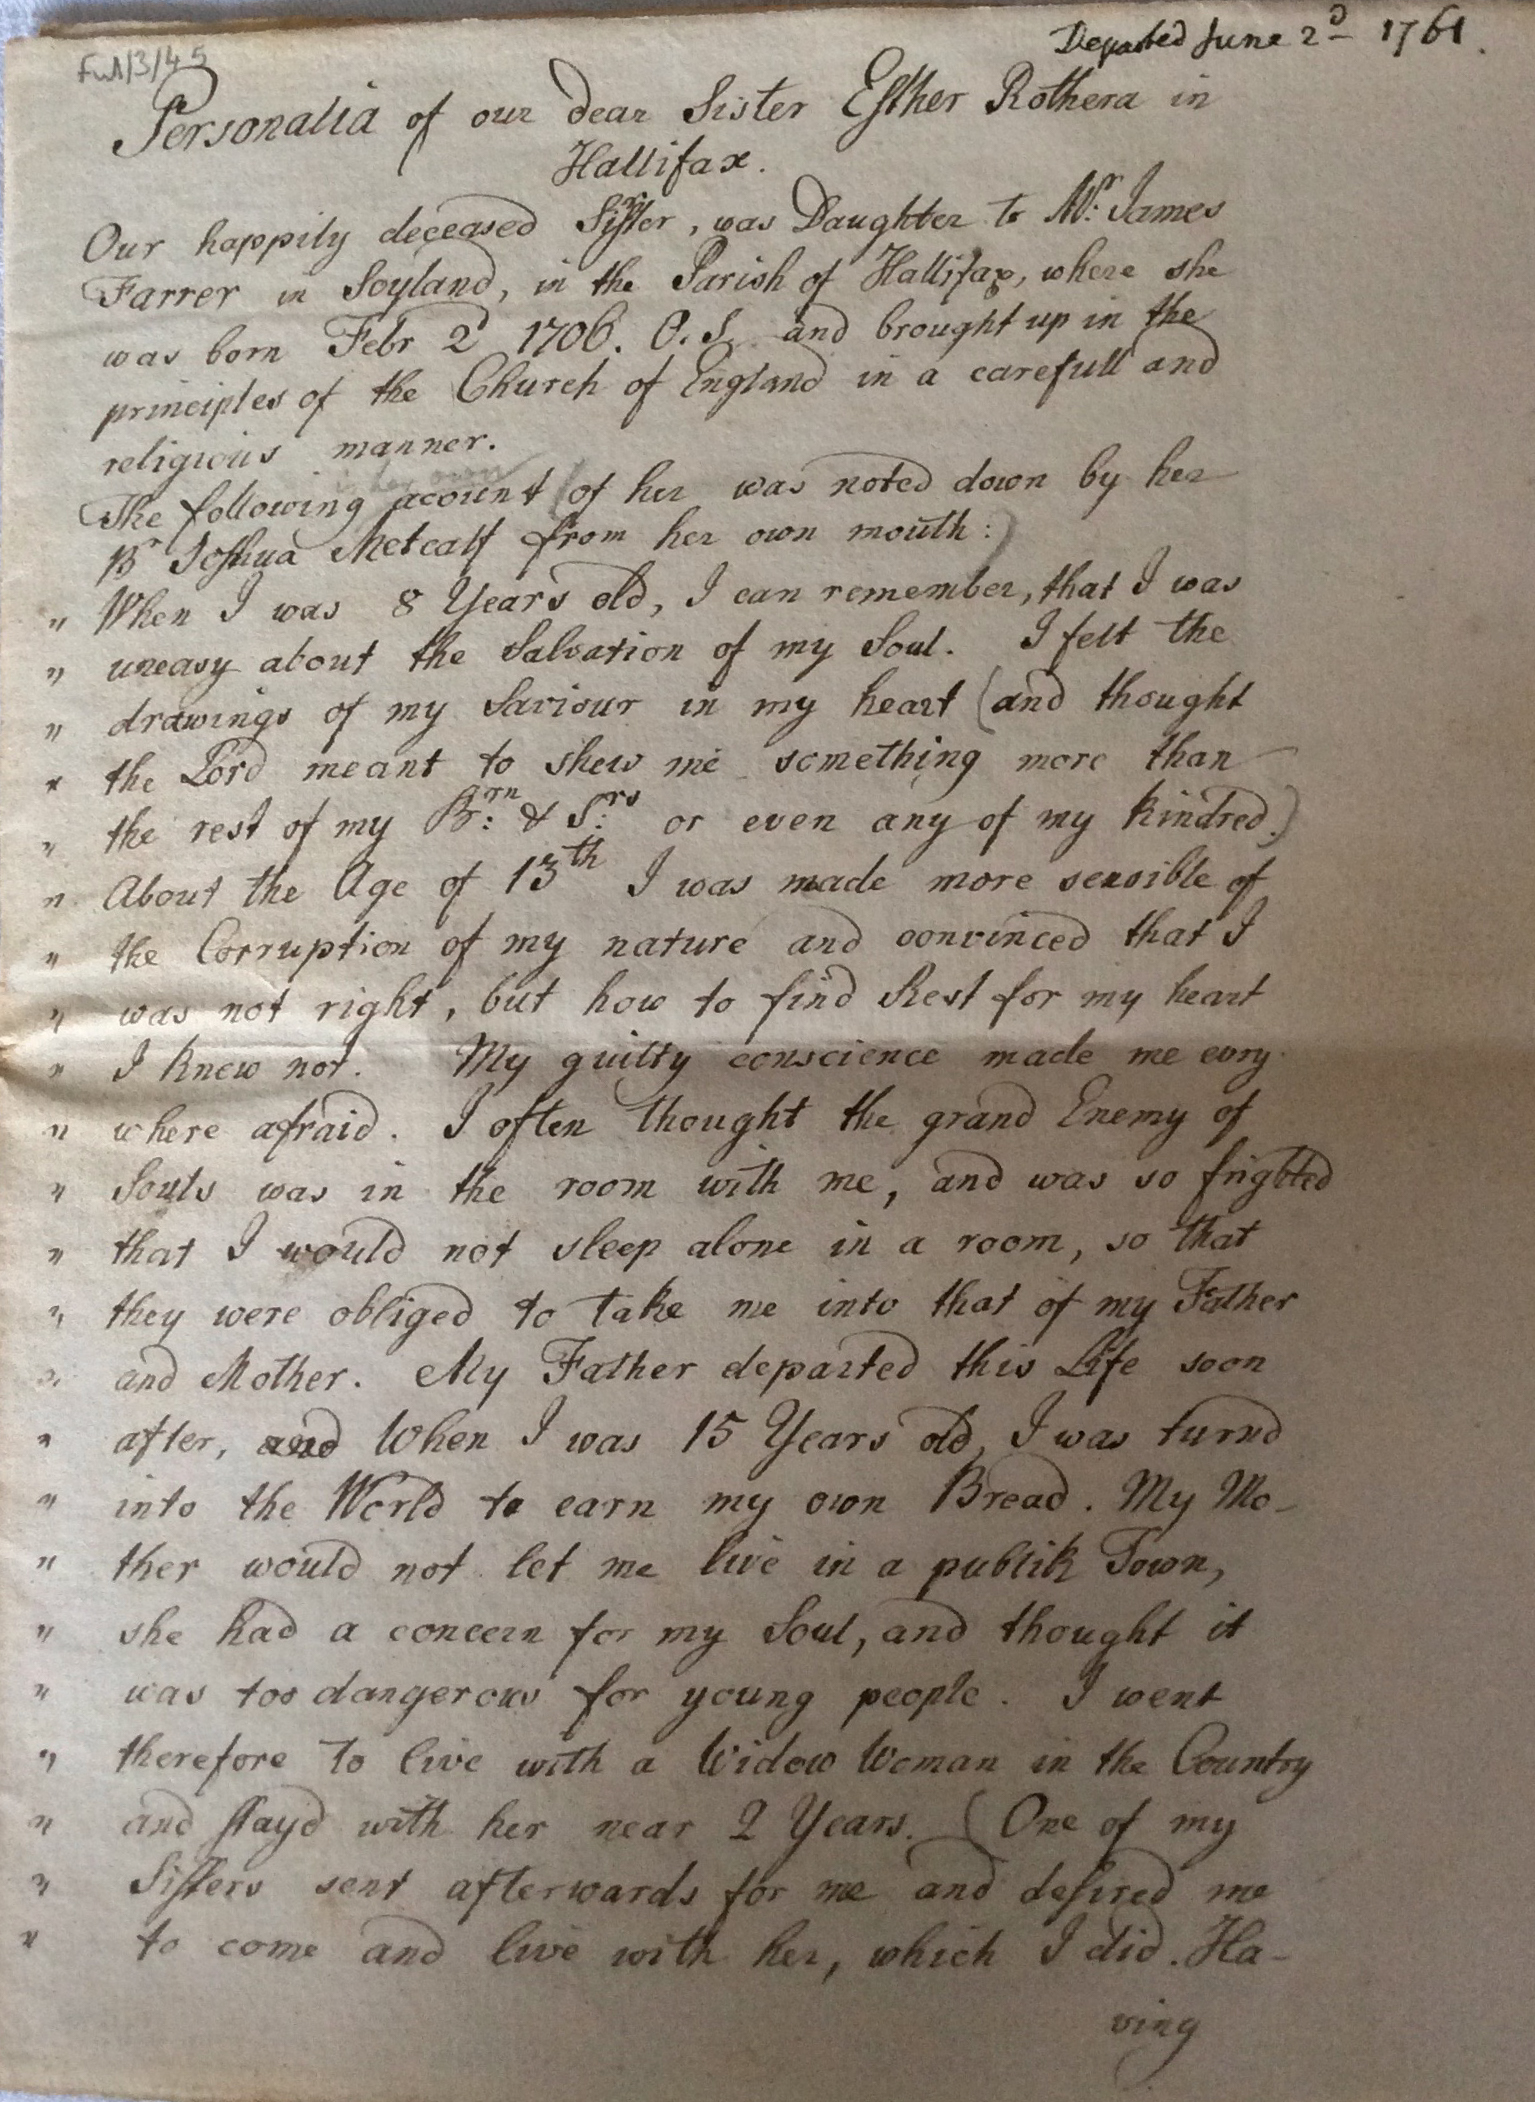 Departed June 2d 1761.
Ful/3/45
Personalia of our dear Sister Esther Rothera in
Hallifax.
Our happily deceased Sister, was Daughter to Mr. James
Farrer in Soyland, in the Parish of Hallifax, where she
was born Febr 2d 1706. O.S. and brought up in the
principles of the Church of England in a carefull and
religious manner.
in her own
The following acount (of her was noted down by her
Br Joshua Metcalf from her own mouth:)
" When I was 8 Years old, I can remember, that I was
" uneasy about the Salvation of my Soul. I felt the
" drawings of my Saviour in my heart (and thought
" the Lord meant to shew me something more than
" the rest of my Br:rn & S:rs or even any of my kindred.)
" About the Age of 13th I was made more sensible of
" the Corruption of my nature and convinced that I
" was not right, but how to find Rest for my heart
" I knew not. My guilty conscience made me evry
" where afraid. I often thought the grand Enemy of
" Souls was in the room with me, and was so frighted
" that I would not sleep alone in a room, so that
" they were obliged to take me into that of my Father
" and Mother. My Father departed this Life soon
" after, and When I was 15 Years old, I was turnd
" into the World to earn my own Bread. My Mo-
" ther would not let me live in a publik Town,
" she had a concern for my Soul, and thought it
" was too dangerous for young people. I went
" therefore to live with a Widow Woman in the Country
" and stayd with her near 2 Years. (One of my
" Sisters sent afterwards for me and desired me
" to come and live with her, which I did. Ha-
ving